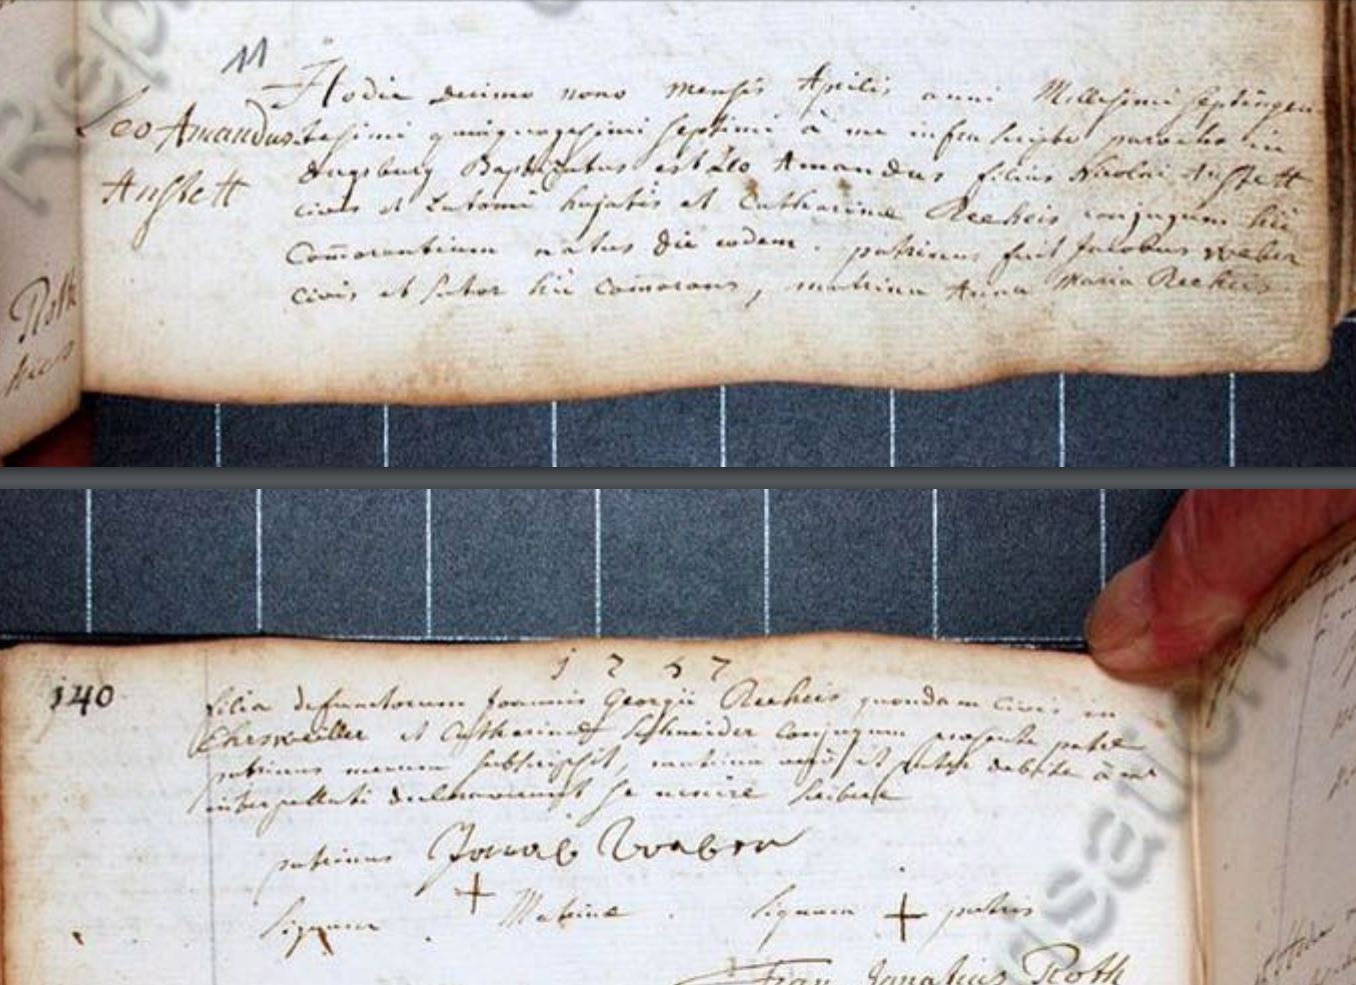 11
Hodie decimo nono mensis Aprilis anni Millesimi septingen
Leo Amandus tesimi quinquagesimi septimi à me infra scripto parocho in
Anstett Dugsburg Baptizatus est Leo Amandus filius Nicolai Anstett
civis et Latomi hujatis et Catharinæ Reeheis conjugum hic
Com̄orantium natus die eodem. patrinus fuit Jacobus Weber
civis et sutor hic com̄orans, matrina Anna Maria Reeheis
Roth
1757
140
filia defunctorum Joannis Georgii Reeheis quondam civis in
et Catharinæ Schneider conjugum præsente patre
patrinus mecum subscripsit, matrina et pater debite à me
interpellati declaraverunt se nescire scribere
patrinus Jacob Weber
signum + Matrinæ signum + patris
Fran Ignatius Roth